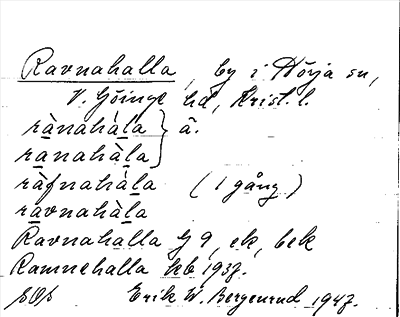 Ravnahalla, by i Hörja sn,
V. Göinge hd, Krist. l.
rànahála } ä.
ranahàla
ràfnahála (1 gång)
ravnahàla
Ravnahalla G 9, ek, bek
Ramnehalla kb 1937.
Erik W. Bergenrud 1947.